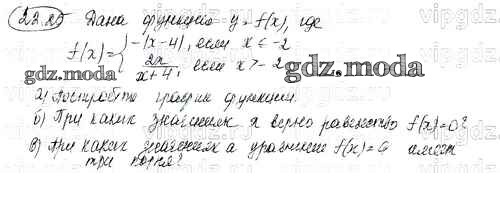 22.20 Дана функция y = f(x), где
f(x) = { -|x-4|, если x ≤ -2
2x/x+4, если x > -2
а) Постройте график функции.
б) При каких значениях x верно равенство f(x)=0?
в) При каких значениях a уравнение f(x)=a имеет
три корня?
gdz.moda
gdz.moda